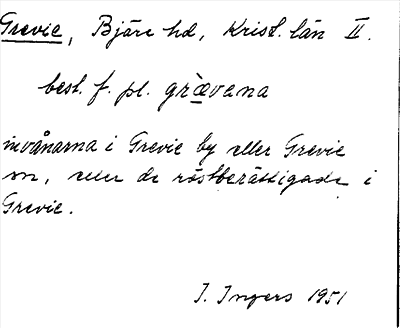 Grevie, Bjäre hd, Krist. län II.
best. f. pl. grævana
invånarna i Grevie by eller Grevie
sn, eller de röstberättigade i
Grevie.
I. Ingers 1951